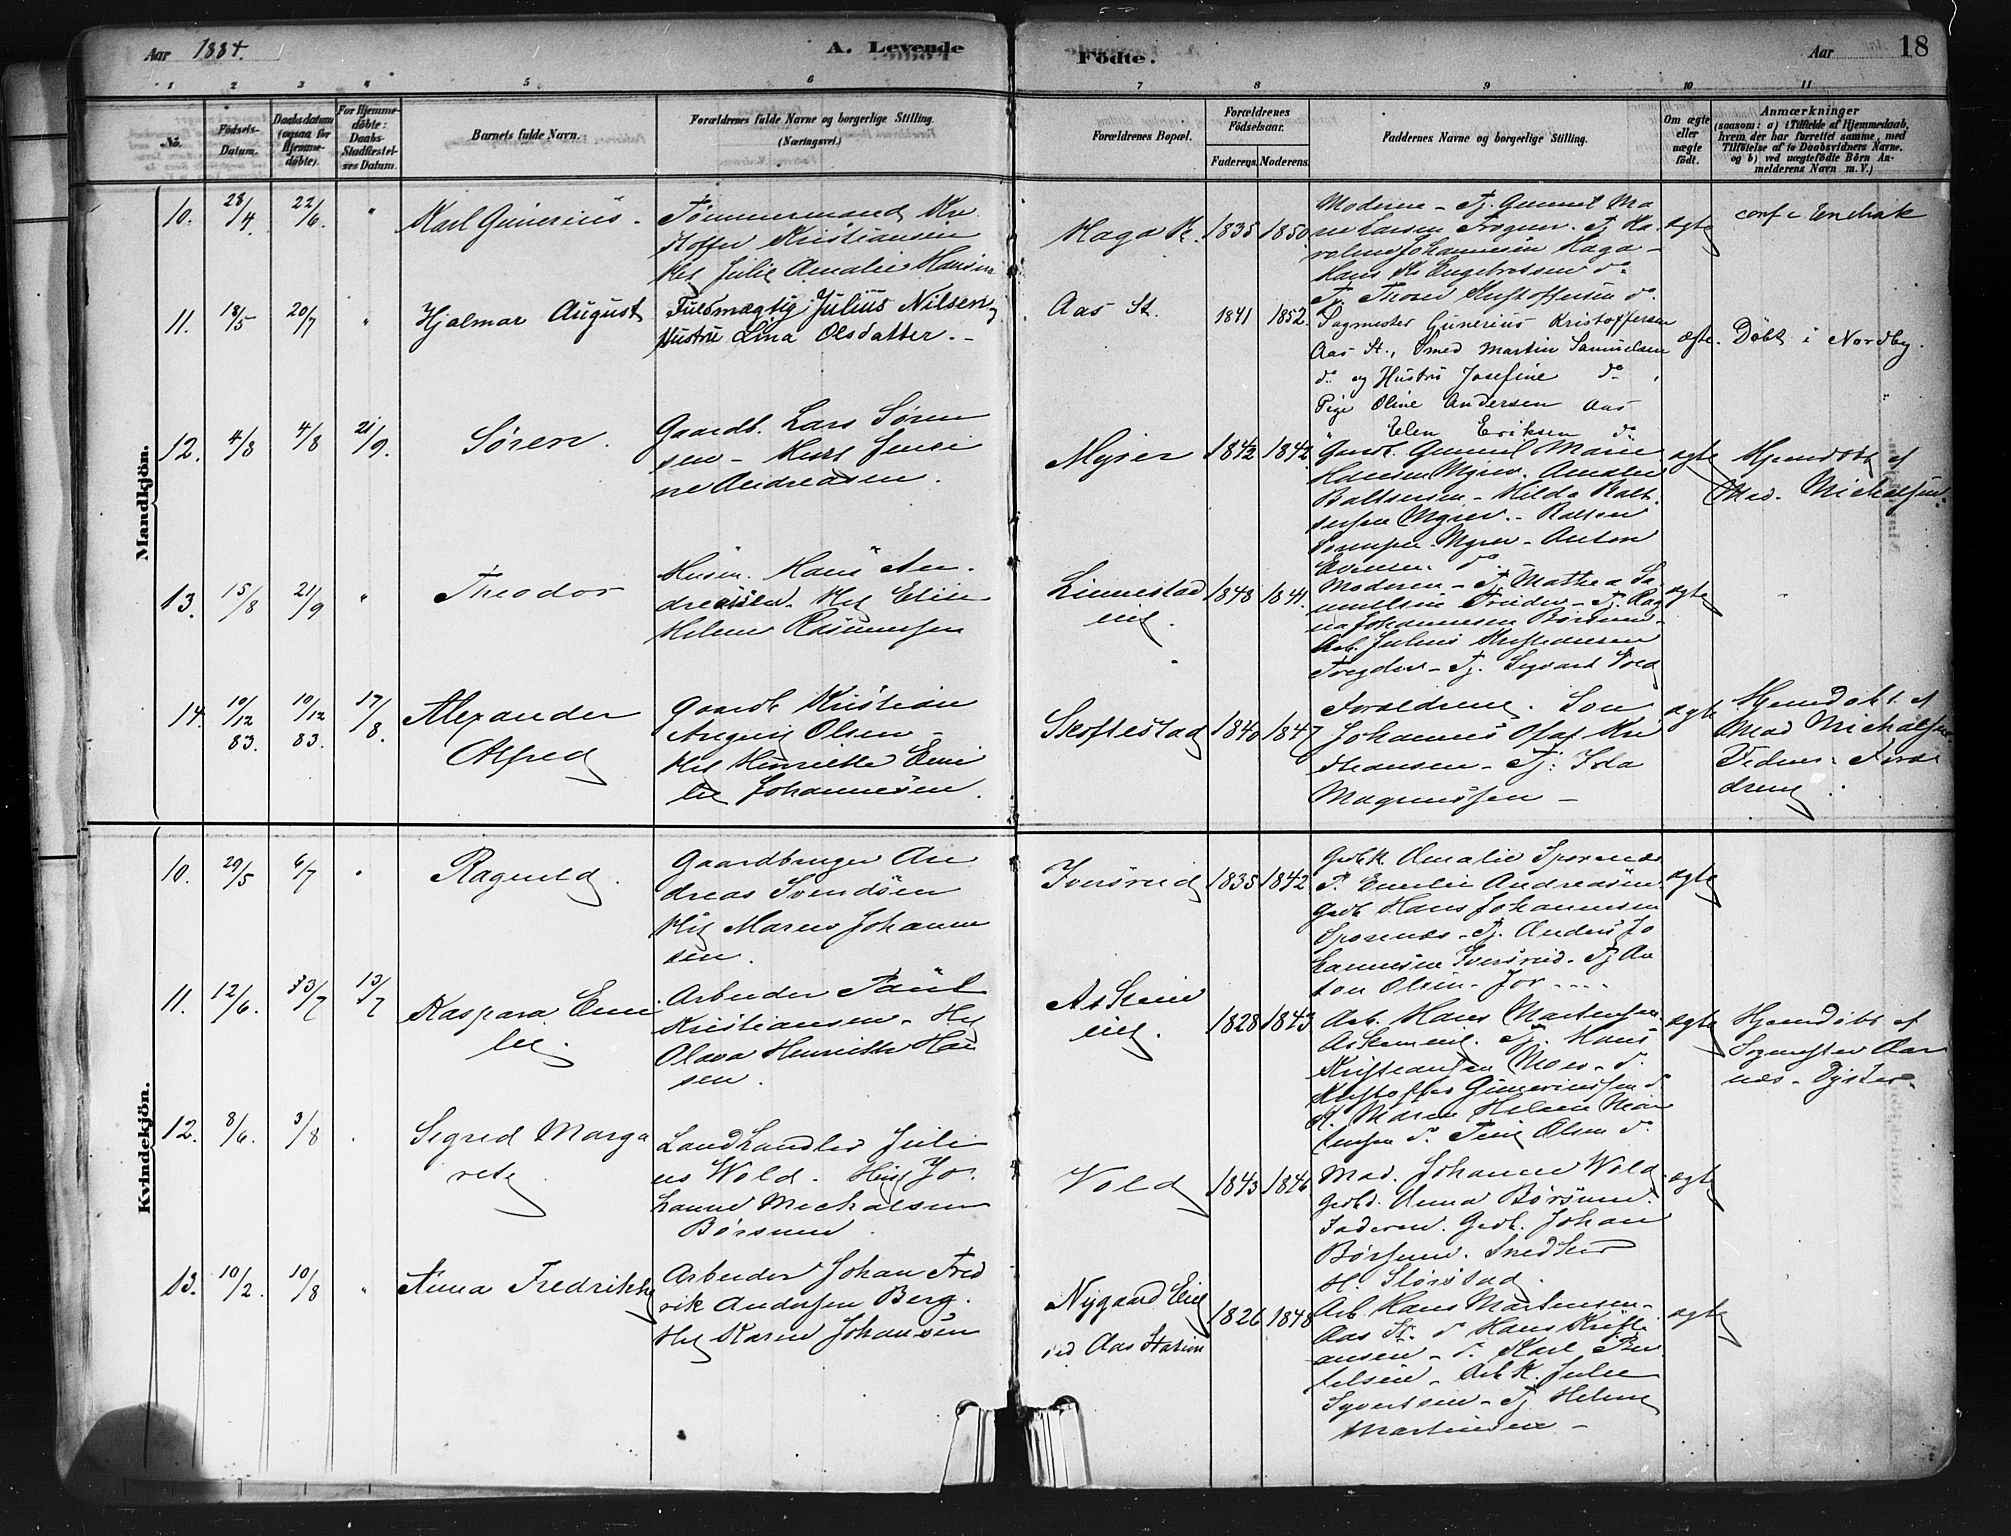 Aar 1884.
A. Levende
Födte.
Aar 18
1 2 3 4 5 6 7 8 9 10 11
No.
Födsels-
Datum.
Daabsdatum
(ogsaa for
Hjemme-
döbte).
For Hjemme-
döbte:
Daabs-
Stadfæstel-
ses Datum.
Barnets fulde Navn.
Forældrenes fulde Navne og borgerlige Stilling.
(Næringsvei.)
Forældrenes Bopæl.
Forældrenes
Fødselsaar.
Faderens. Moderens.
Faddernes Navne og borgerlige Stilling.
Om ægte
eller
uægte
födt.
Anmærkninger
(saasom: a) i Tilfælde af Hjemmedaab,
hvem der har forrettet samme, med
Tilföielse af to Daabsvidners Navne,
og b) ved uægtefödte Börn An-
melderens Navn m. V.)
Mandkjön.
10. 28/4 22/6. "
Karl Gunerius.
Tømmermand Kri
stoffer Kristiansen
Hst Julie Amalie Hansen
Haga
1835 1850
Moderen - Tj. Gunnel Ma
rie Larsen Frogner. Tj. Ka
roline Johannesen Haga -
Hans Engebretsen do
Tj. Kristoffersen do.
ægte
11. 18/5 20/7 "
Hjalmar August
Fuldmægtig Julius Nilsen og
Hustru Lina Olsdatter. -
Aas St.
1841 1852.
Sagmester Gunerius Kristoffersen
Aas St., Smed Martin Samuelsen
do og Hustru Josefine do.
Pige Oline Andersen Aas
" Elen Eriksen do
ægte.
Döbt i Nordby.
12. 4/8 4/8 21/9.
Søren.
Gaardb. Lars Søren
sen - Hust Jensi
ne Andreasen.
Myrer
1842 1842.
Gunnel Marie
Hansen Myrer. Amalie
Baltsersen - Hilda Balt
sersen Myrer. - Baltser
Sørensen Myrer - Anton
Evensen do
ægte
Hjemdøbt af
Mad. Michalsen.
13. 15/8 21/9 "
Theodor
Husm. Hans An
dreassen. Hst Elise
Helene Rasmussen
Linnestad
eie.
1848 1841.
Moderen - Tj. Mathea Sa
muelsen - Tj. Rag
na Johannesen Børsum -
Arb. Julius Kristiansen
- Tj. Sigvart
ægte
"
14. 10/12 83. 10/12 83. 17/8.
Alexander
Alfred
Gaardb Kristian
August Olsen -
Hst Henriette Emi
lie Johannesen.
Skoftestad
1840 1847
Forældrene. Søn
Johannes Olaf Kri
stiansen - Tj. Ida
Magnussen -
ægte
Hjemdøbt af
Mad Michalsen
Foræl
drene.
Kvindekjön.
10. 29/5 6/7 "
Ragnild.
Gaardbruger An
dreas Svendsen
Hst Maren Johanne
sen.
Iversrud
1835 1842
Gbk. Amalie Sporenæs
P. Emilie Andreasen.
Gbr Hans Johannesen
Sporenæs - Tj. Anders Jo
hannesen Iversrud. Tj An
ton Olsen
ægte
11. 12/6. 13/7 13/7
Kaspara Emi
lie.
Arbeider Paul
Kristiansen. Hst
Olava Henriette Han
sen.
Askein
eie.
1828 1843
Arb. Hans Martinsen
Tj. Hans
Kristiansen Moer - do
Kristoffer Gunneriussen do
K. Maren Helene Mar
tinsen do. Olsen do.
ægte
Hjemdøbt af
Sogneprest Aar
næs - Dyster.
12. 8/6. 3/8 "
Sigrid Marga
rete
Landhandler Juli
us Wold. Hst Jo
hanne Michalsen
Børsum.
Vold
1843 1846
Mad. Johanne Wold
Anna Børsum.
Faderen. Gbr. Johan
Børsum. Snedker
H. Slørstad.
ægte
13. 10/2. 10/8 "
Anna Fredrikke
Arbeider Johan Fred
rik Andersen Berg.
Hst Karen Johansen
Nygaard Eie
ved Aas Station
1826 1848
Arb Hans Martinsen -
Aas St. do Hans Kristi
ansen - do. Karl Ber
telsen - Arb K. Julie
Syvertsen - Tj Helene
Martinsen -
ægte